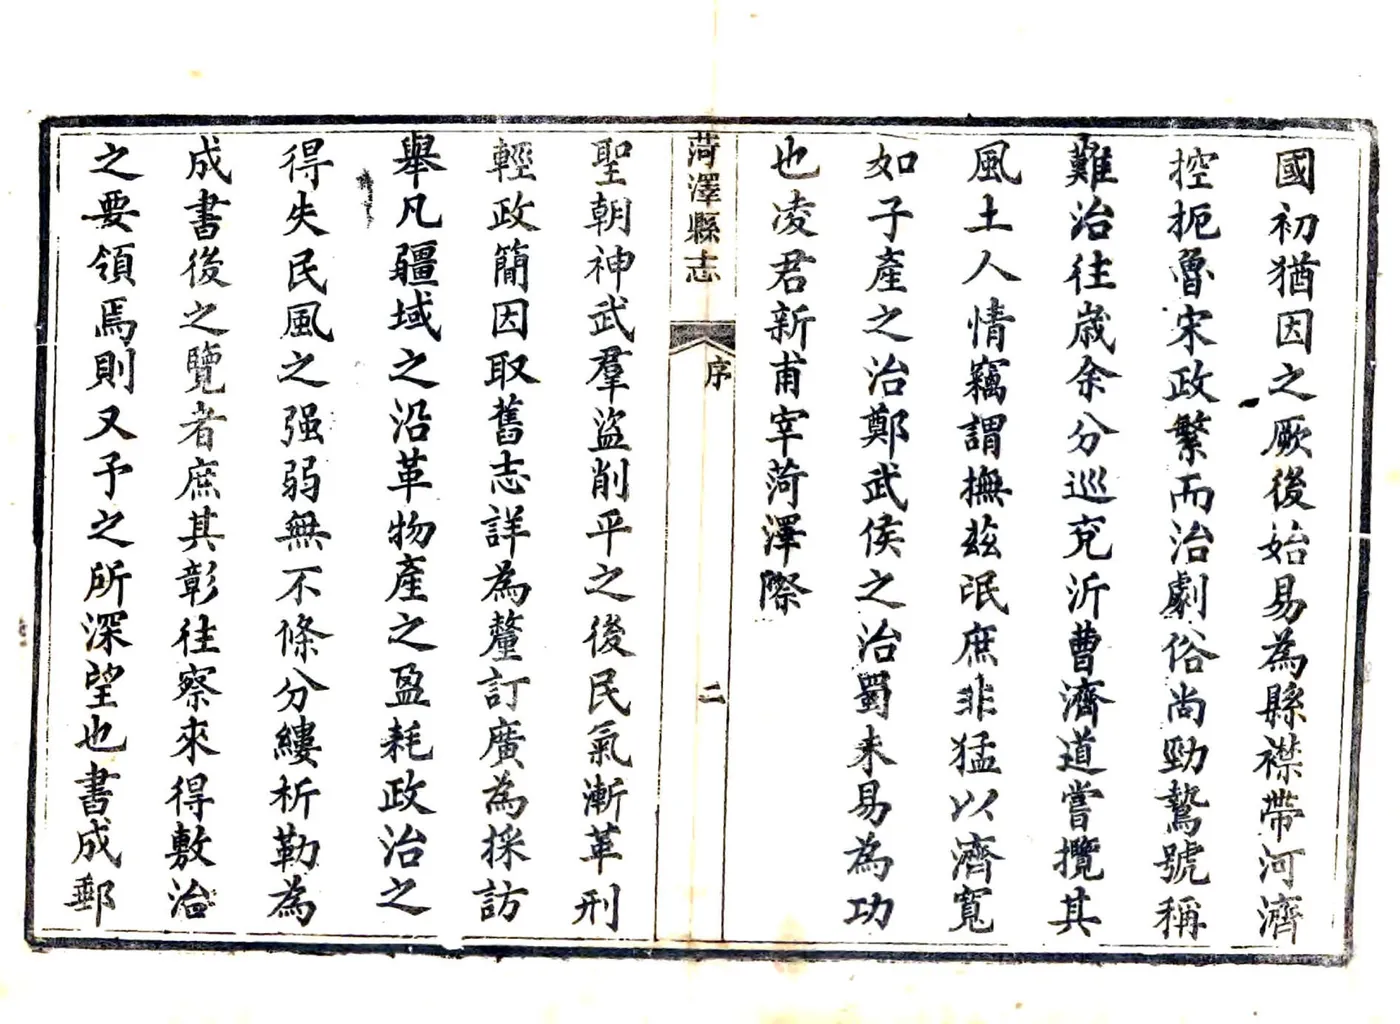 國初猶因之厥後始易為縣襟帶河濟
控扼魯宋政繁而治劇俗尚勁鷙號稱
難治往歲余分巡兖沂曹濟道嘗攬其
風土人情竊謂撫茲氓庶非猛以濟寬
如子產之治鄭武侯之治蜀未易為功
也凌君新甫宰菏澤際
菏澤縣志
序
二
聖朝神武羣盜削平之後民氣漸革刑
輕政簡因取舊志詳為釐訂廣為採訪
舉凡疆域之沿革物產之盈耗政治之
得失民風之强弱無不條分縷析勒為
成書後之覽者庶其彰往察來得敷治
之要領焉則又予之所深望也書成郵